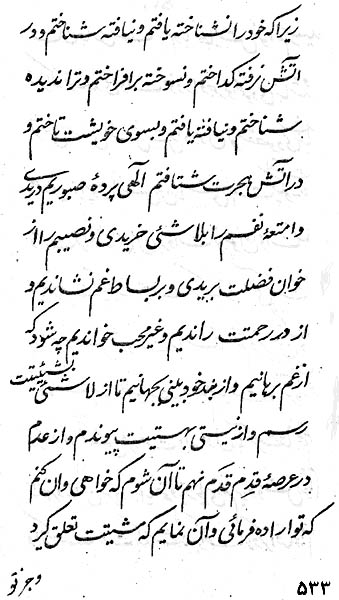 زیرا که خود را نشناخته یافتم و نیافته شناختم و در
آتش نرفته گداختم و نسوخته برافراختم و ترا ندیده
شناختم و نیافته یافتم و بسوی خویشت تاختم و
در آتش هجرت شتافتم الهی پردهٔ صبوریم دریدی
و امتعهٔ نفسم را بلاشئی خریدی و نصیبم را از
خوان فضلت بریدی و بر بساط غم نشاندیم و
از در رحمت راندیم و غیر محب خواندیم چه شود که
از غم برهانیم و از خودبینی بجهانیم تا از لاشئی بشیئیت
رسم و از نیستی بهستیت پیوندم و از عدم
در عرصهٔ قدم قدم نهم تا آن شوم که خواهی و آن کنم
که تو اراده فرمائی و آن نمایم که مشیتت تعلق گیرد
و جز تو
۵۳۳